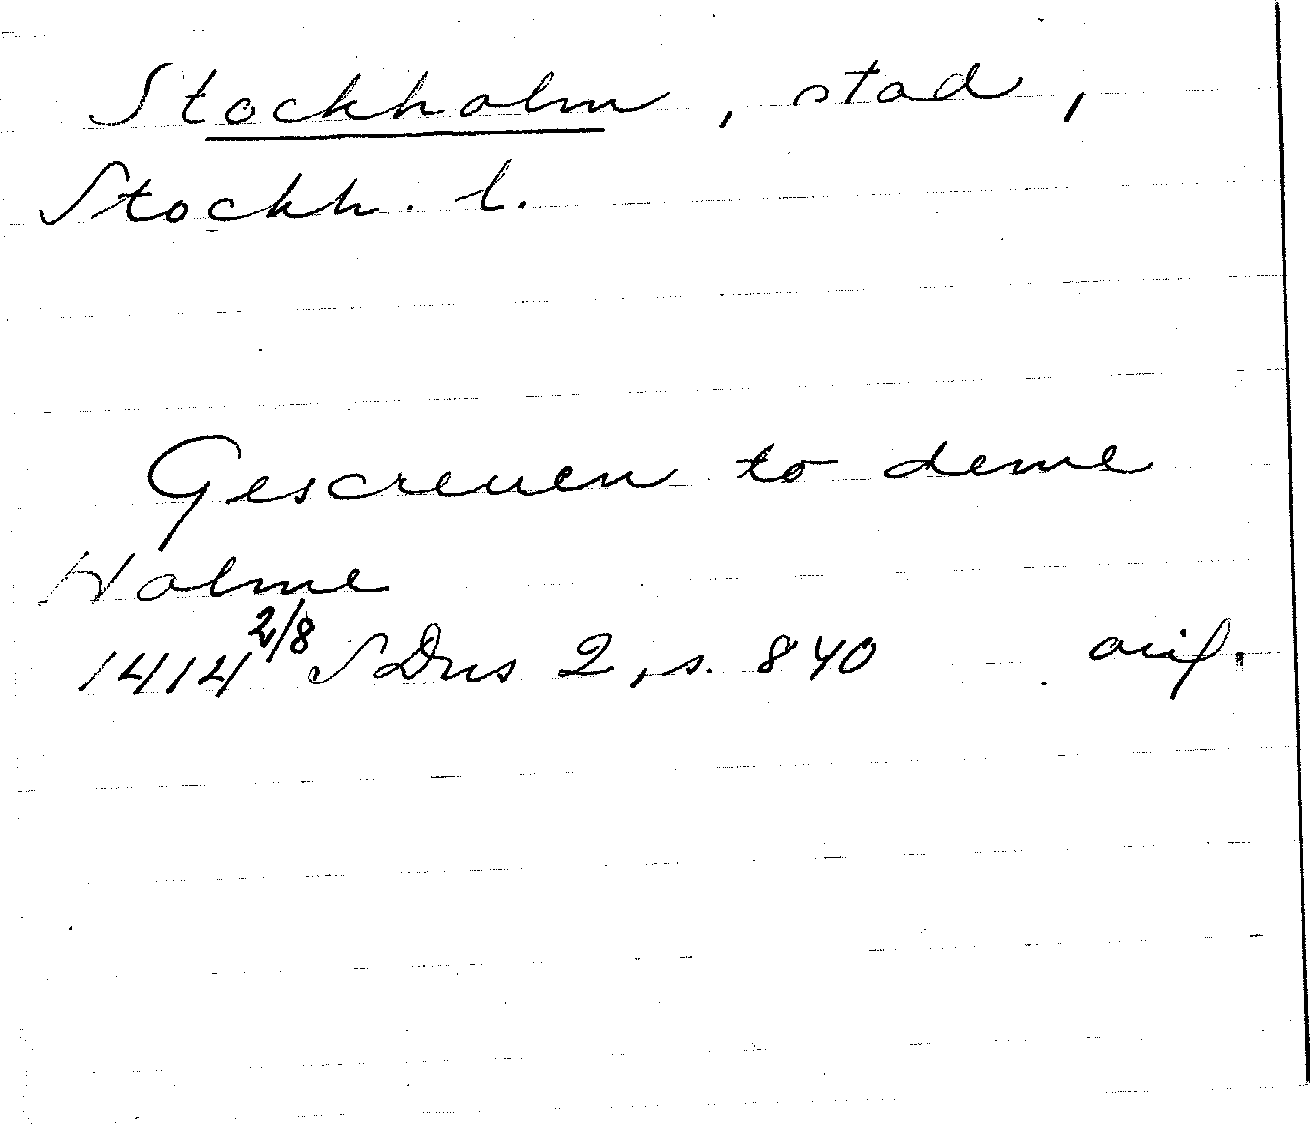 Stockholm, stad,
Stockh. l.
Gescreuen to deme
Holme
1414 2/8 SDns 2, s. 840 orig.